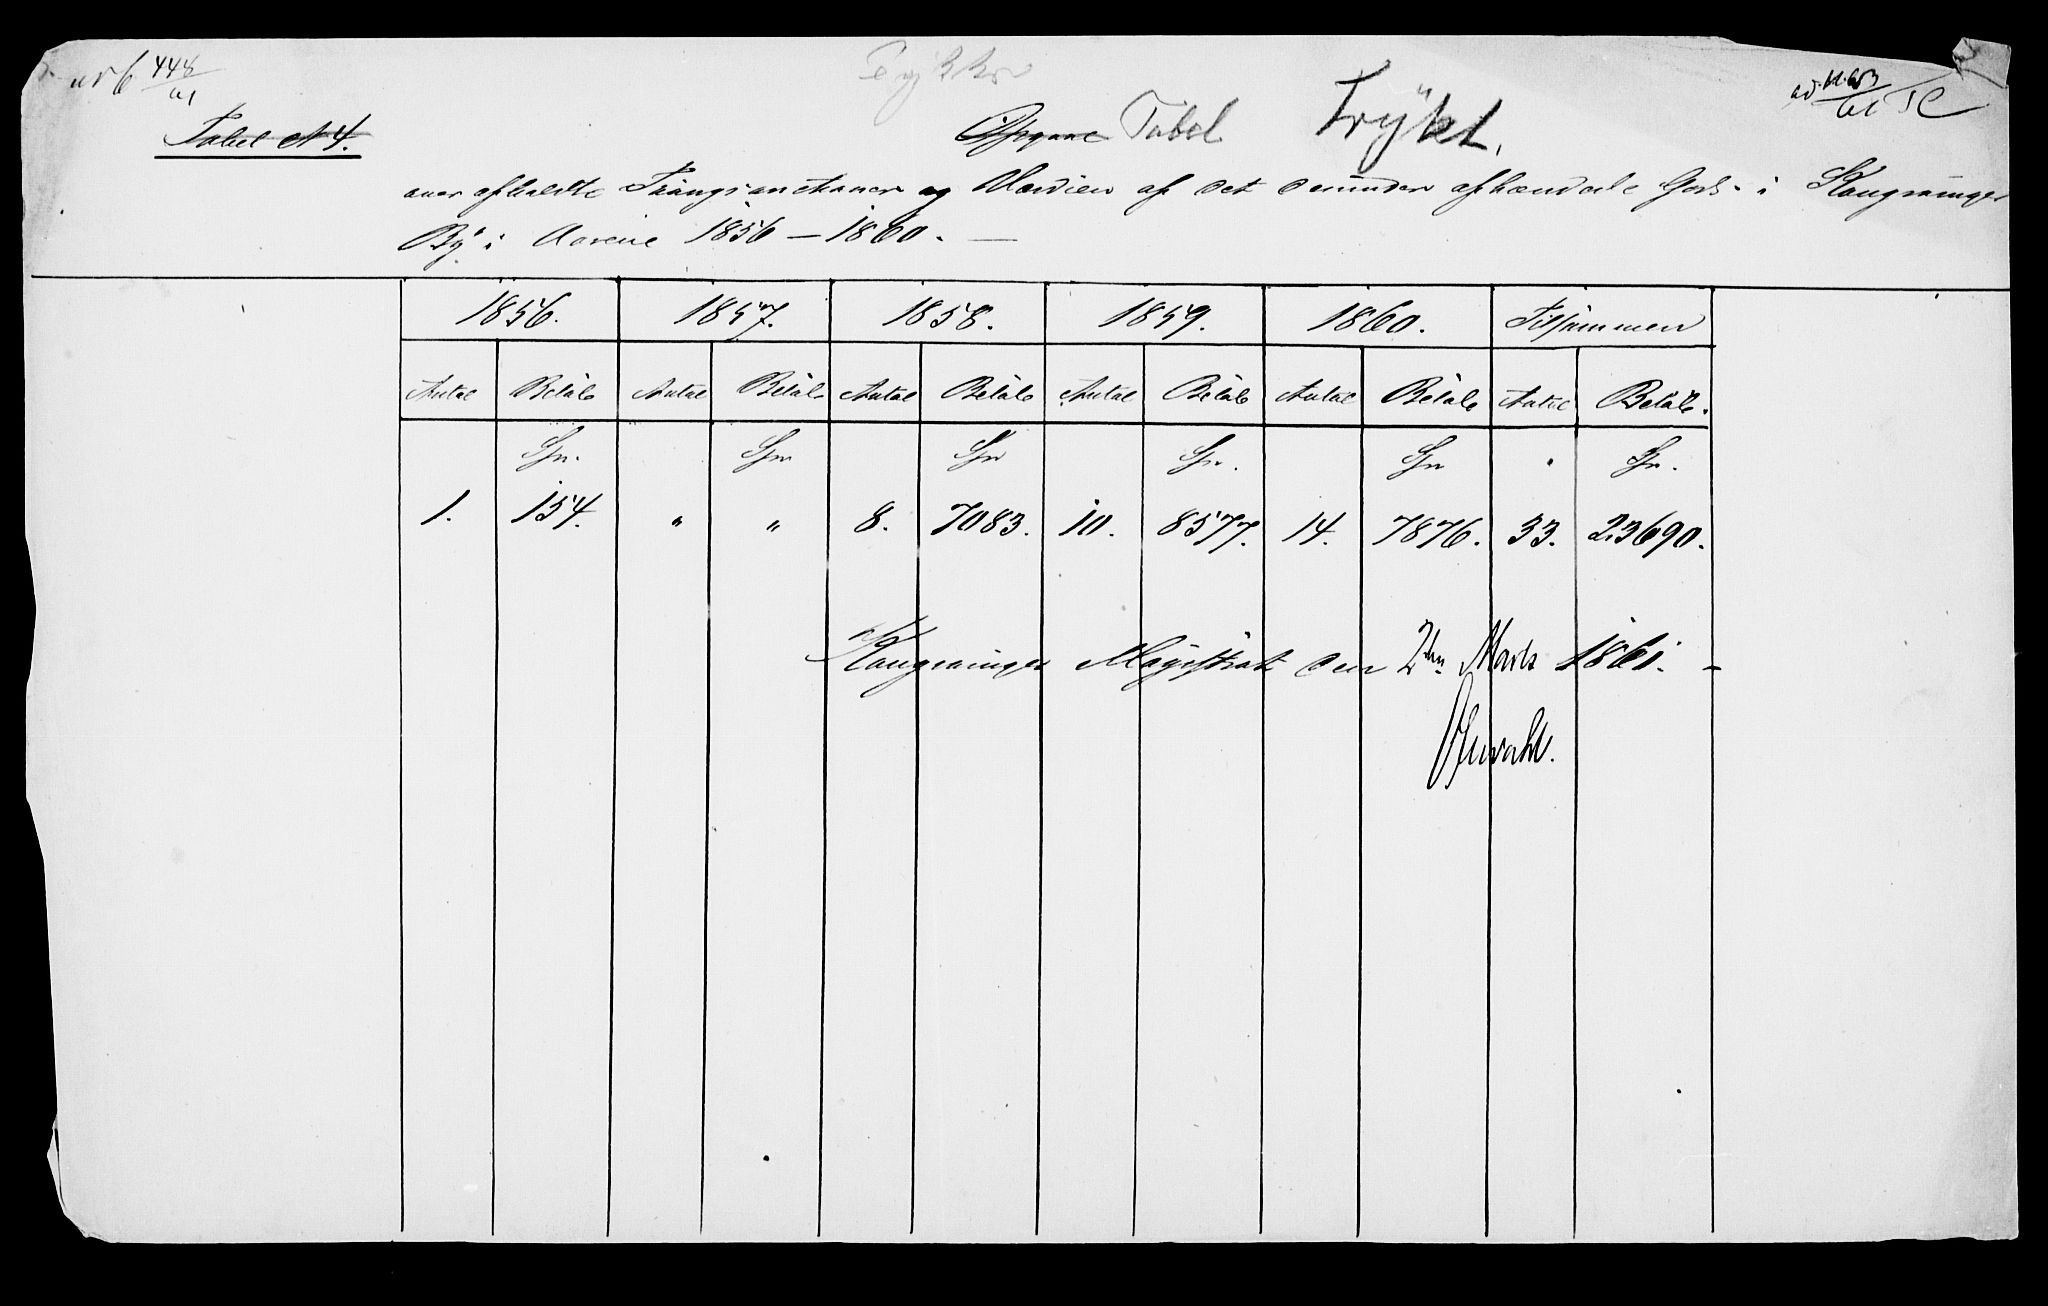 448
Tabel No 4.
Tabel Trykt.
over afholdte Tvangsauctioner og Værdien af det derunder afhændede Gods i Kongsvinger
By i Aarene 1856 – 1860. —
1856. 1857. 1858. 1859. 1860. Tilsammen
Antal Beløb Antal Beløb Antal Beløb Antal Beløb Antal Beløb Antal Beløb.
Spd. Spd Spd Spd. Spd Spd.
1. 154. " " 8. 7083. 10. 8577. 14. 7876. 33. 23690.
Kongsvinger Magistrat den 2den Marts 1861. –